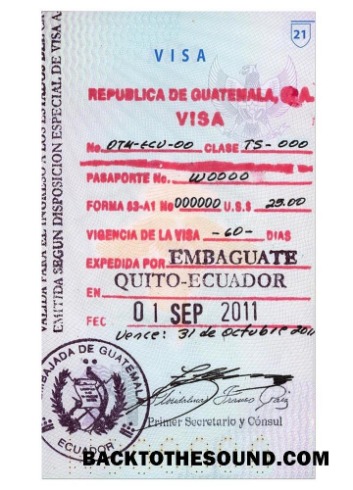 21
VISA
REPUBLICA DE GUATEMALA, C.A.
VISA
No. OTH-ECU-00 CLASE TS-000
PASAPORTE No. W0000
FORMA 63-A1 No 000000 U.S.$ 25.00
VIGENCIA DE LA VISA -60- DIAS
EXPEDIDA POR EMBAGUATE
EN QUITO-ECUADOR
FEC 01 SEP 2011
Vence: 31 de octubre 2011
EMBAJADA DE GUATEMALA
ECUADOR
Primer Secretario y Cónsul
VALIDA PARA EL INGRESO A LOS ESTADOS
EMITIDA SEGUN DISPOSICION ESPECIAL DE VISA A
BACKTOTHESOUND.COM